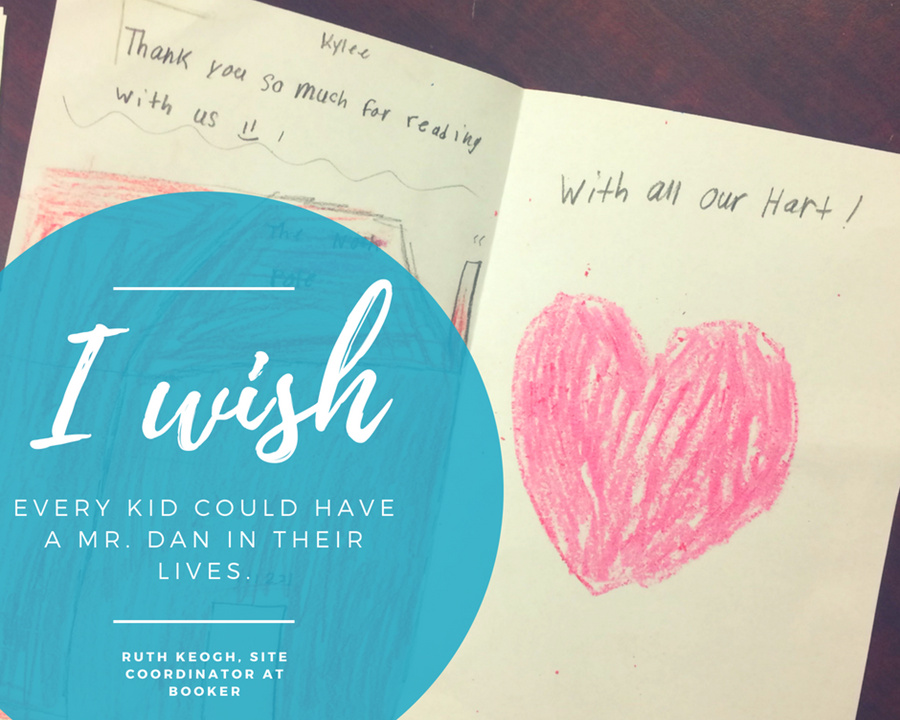 Kylee
Thank you so much for reading
with us !! !
With all our Hart !
The
I wish
EVERY KID COULD HAVE
A MR. DAN IN THEIR
LIVES.
RUTH KEOGH, SITE
COORDINATOR AT
BOOKER